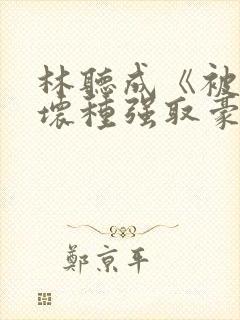 林聽成《被
壞種强取豪
鄭京平